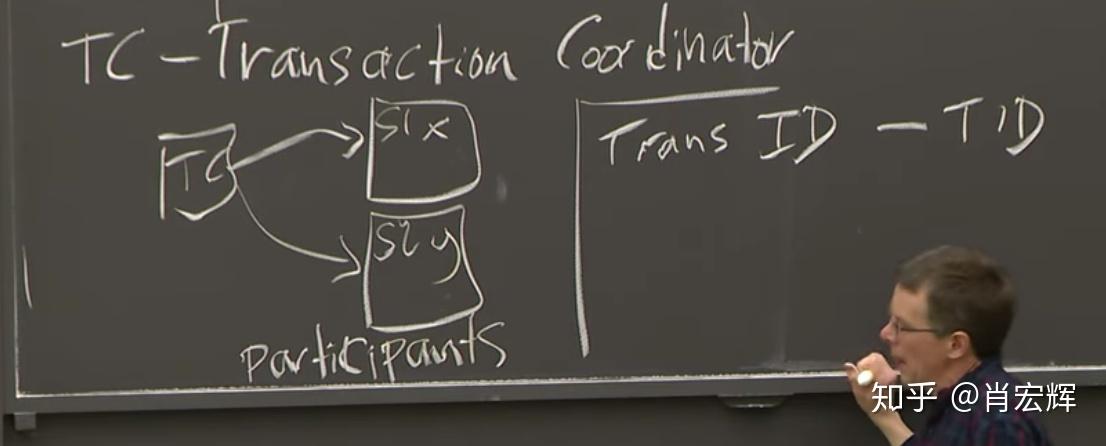 TC - Transaction Coordinator
TC
S1 X
S2 y
participants
Trans ID - TID
知乎 @肖宏辉